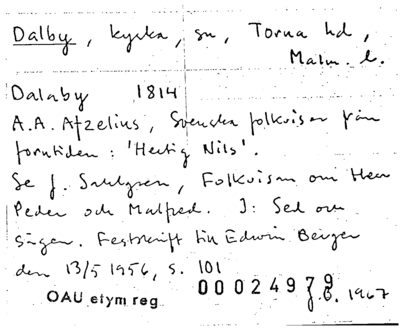 Dalby, kyrka, sn, Torna hd,
Malm. l.
Dalaby 1814
A.A. Afzelius, Svenska folkvisor från
forntiden: 'Hertig Nils'.
Se J. Sahlgren, Folkvisan om Herr
Peder och Malfred. I: Sed och
sägen. Festskrift till Edwin Berger
den 13/5 1956, s. 101
OAU etym reg 00024979
J.B. 1967